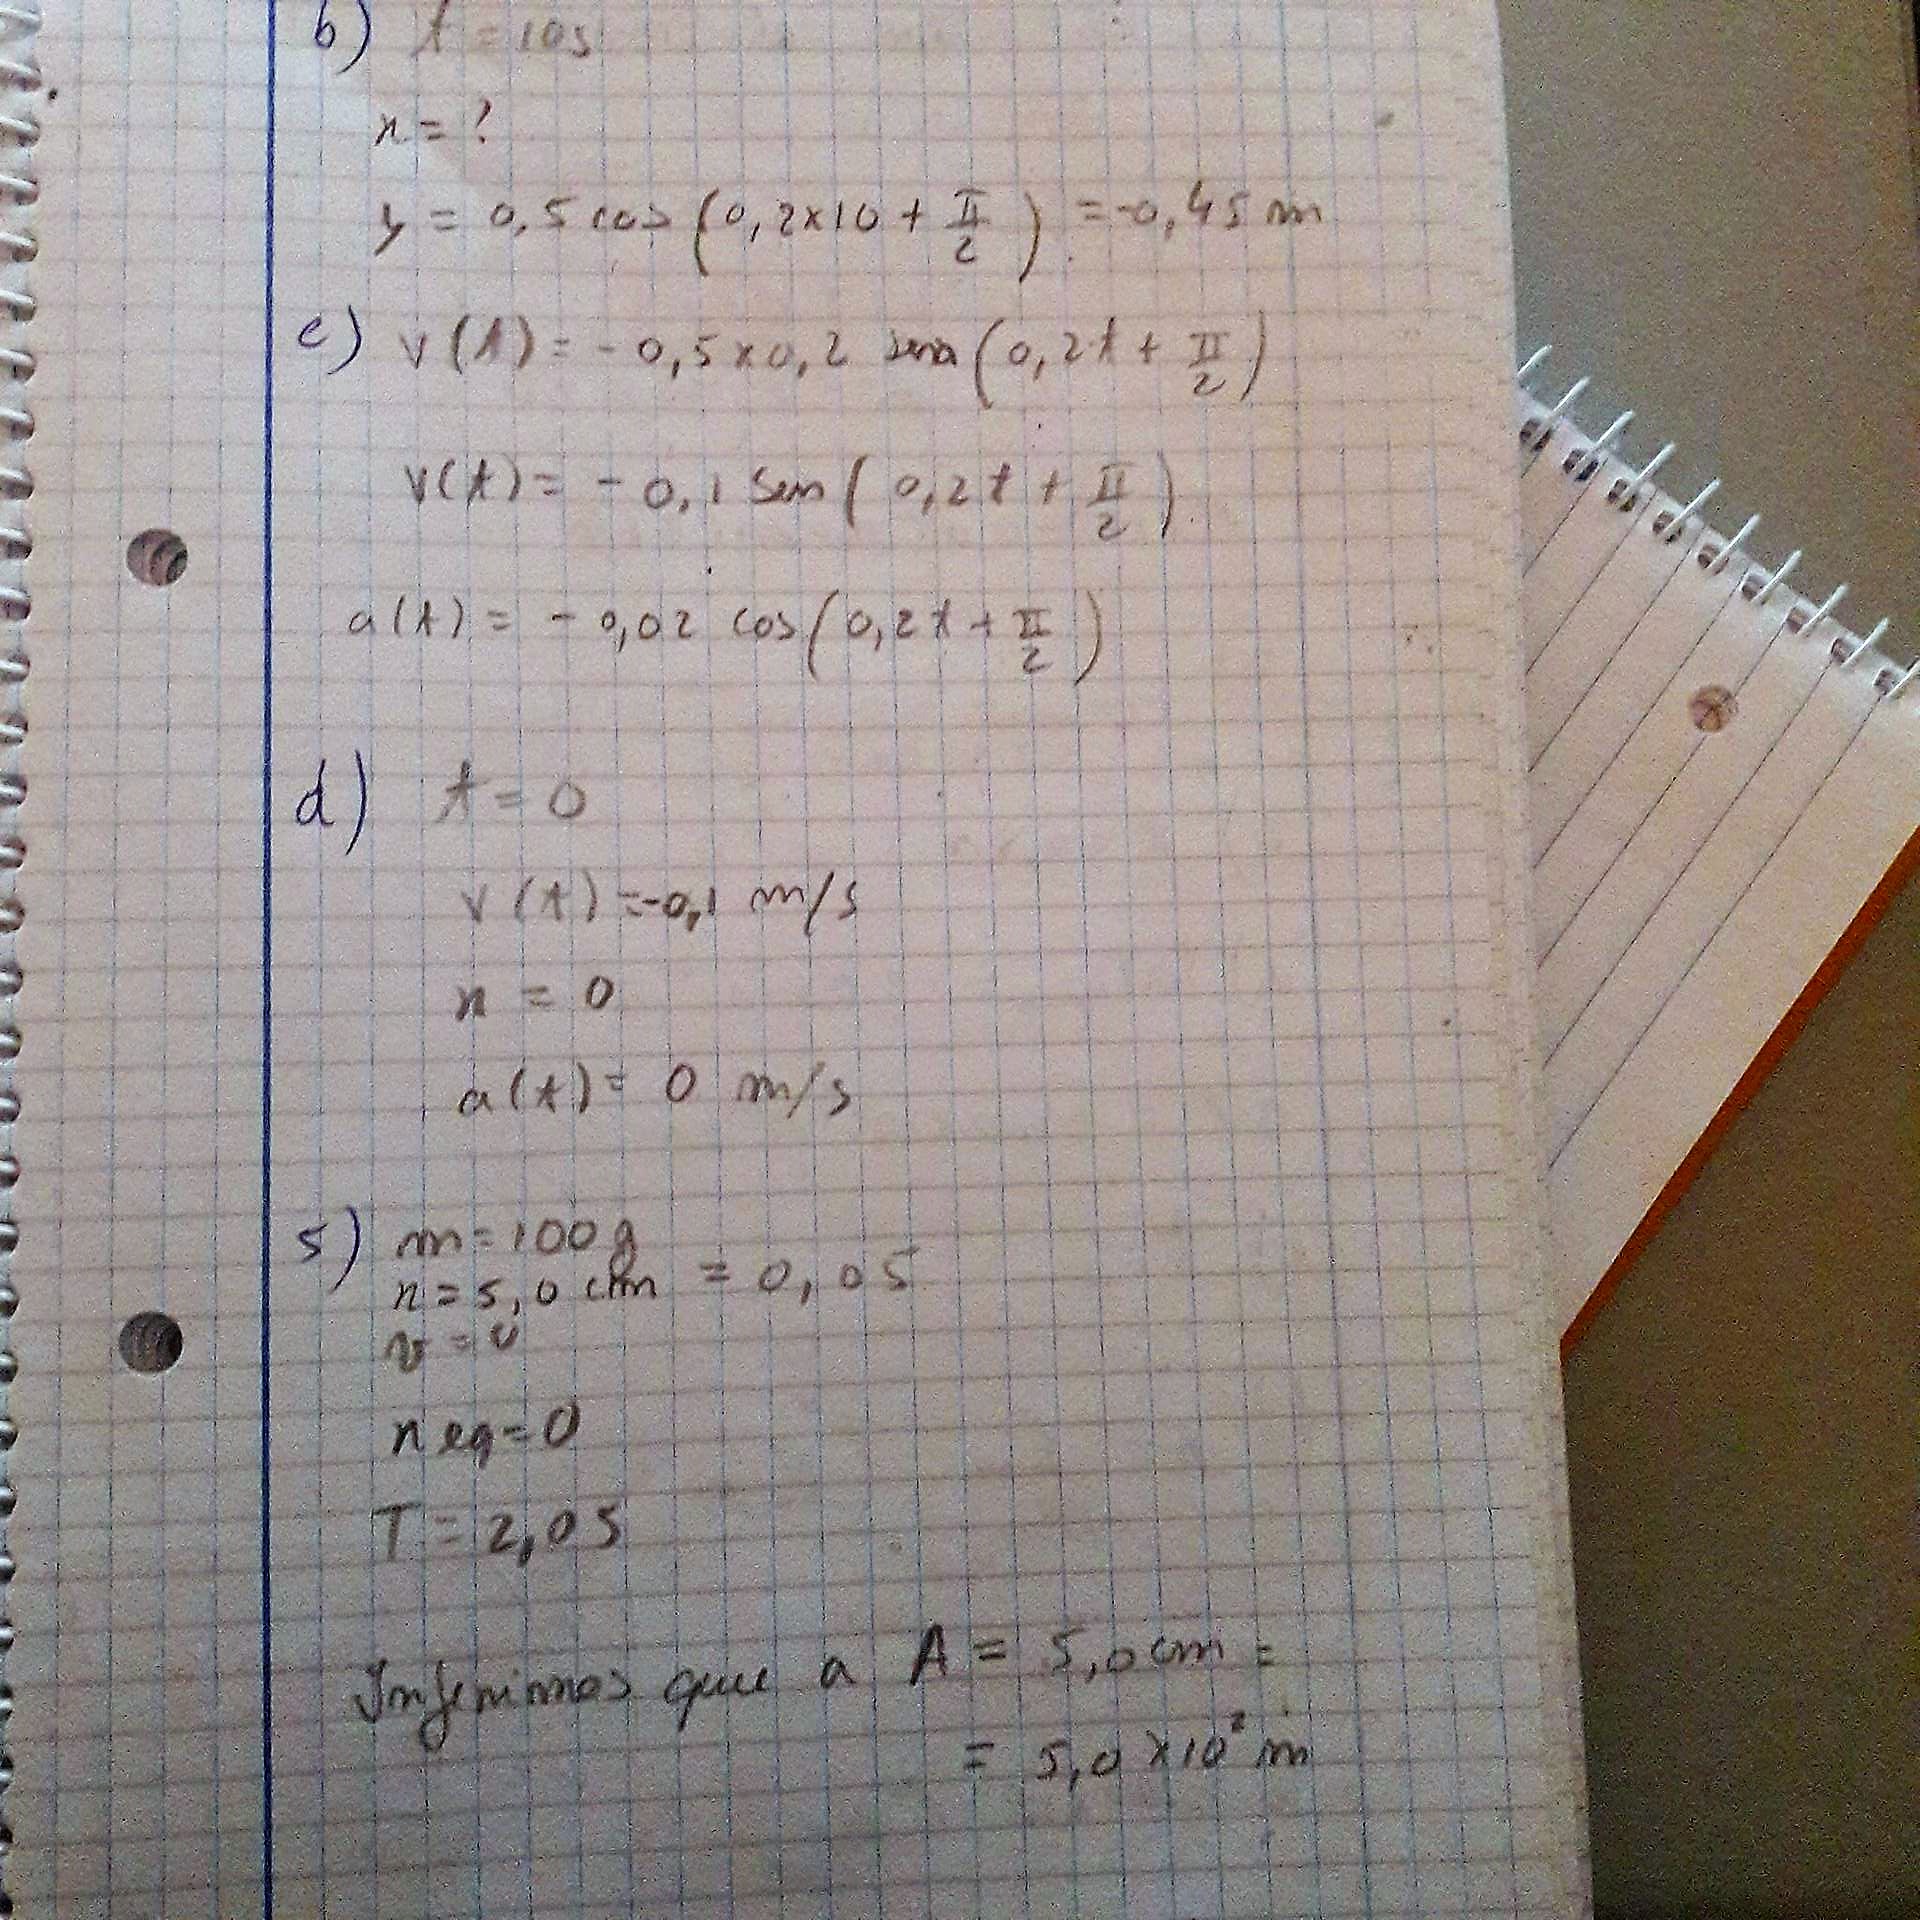 b) t = 10s
x = ?
y = 0,5 cos (0,2x10 + π/2) = -0,45 m
c) v(t) = - 0,5 x 0,2 sen (0,2t + π/2)
v(t) = - 0,1 sen ( 0,2t + π/2 )
a(t) = - 0,02 cos (0,2t + π/2)
d) t = 0
v(t) = -0,1 m/s
x = 0
a(t) = 0 m/s
5) m = 100 g
x = 5,0 cm = 0,05
v = 0
x eq = 0
T = 2,0 s
Inferimos que a A = 5,0 cm =
= 5,0 x 10² m